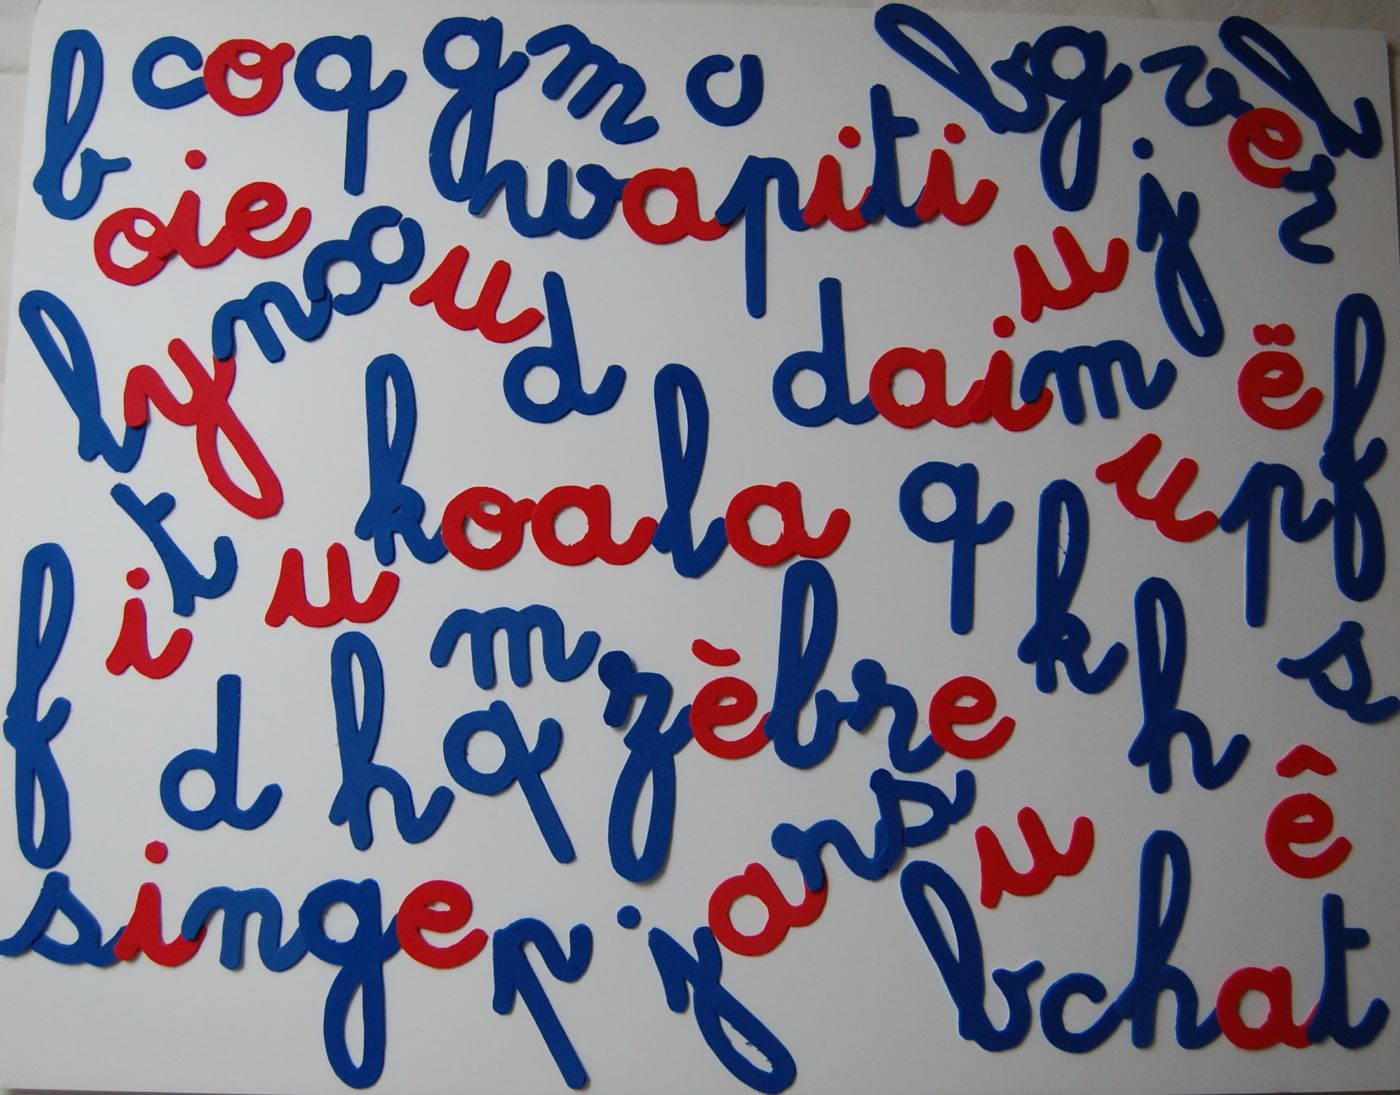 b coq g m c b g v l
oie wapiti j e r
lynx u d daim u ë f
t koala q k u p
f i u m zèbre h s
d h q ê
singe p jars u
b chat